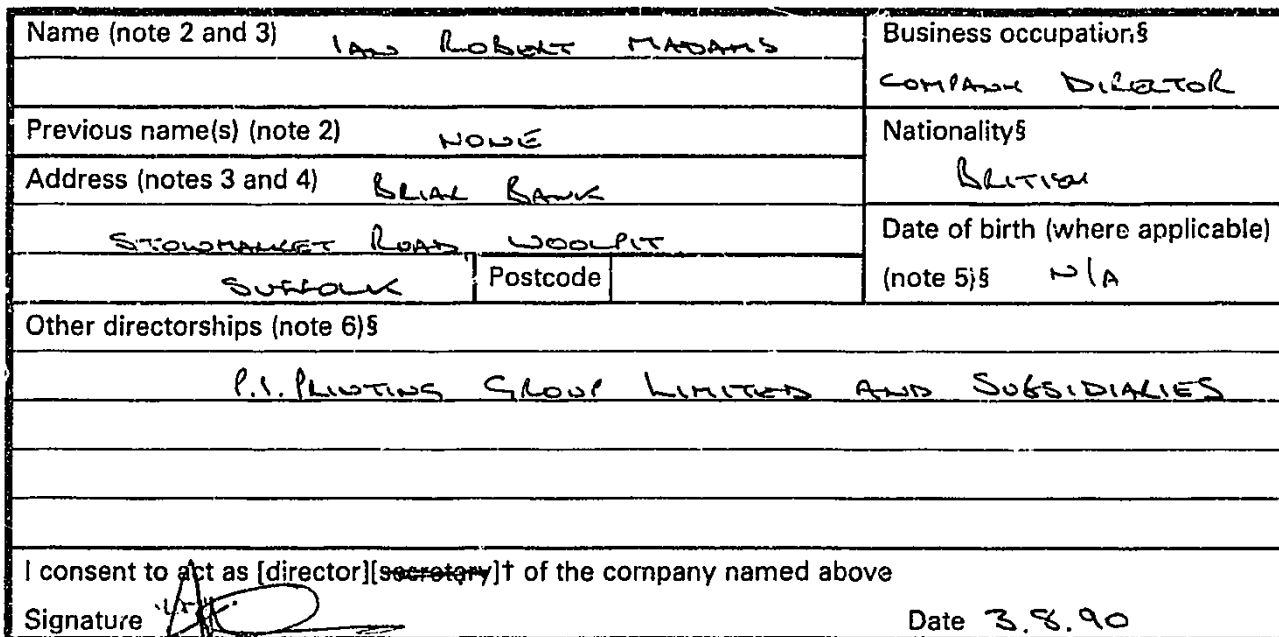 Name (note 2 and 3) IAN ROBERT MADAMS
Business occupation§
COMPANY DIRECTOR
Previous name(s) (note 2) NONE
Nationality§
BRITISH
Address (notes 3 and 4) BRIAR BANK
STOWMARKET ROAD, WOOLPIT
SUFFOLK Postcode
Date of birth (where applicable)
(note 5)§ N/A
Other directorships (note 6)§
P.I. PRINTING GROUP LIMITED AND SUBSIDIARIES
I consent to act as [director][secretary]† of the company named above
Signature Date 3.8.90